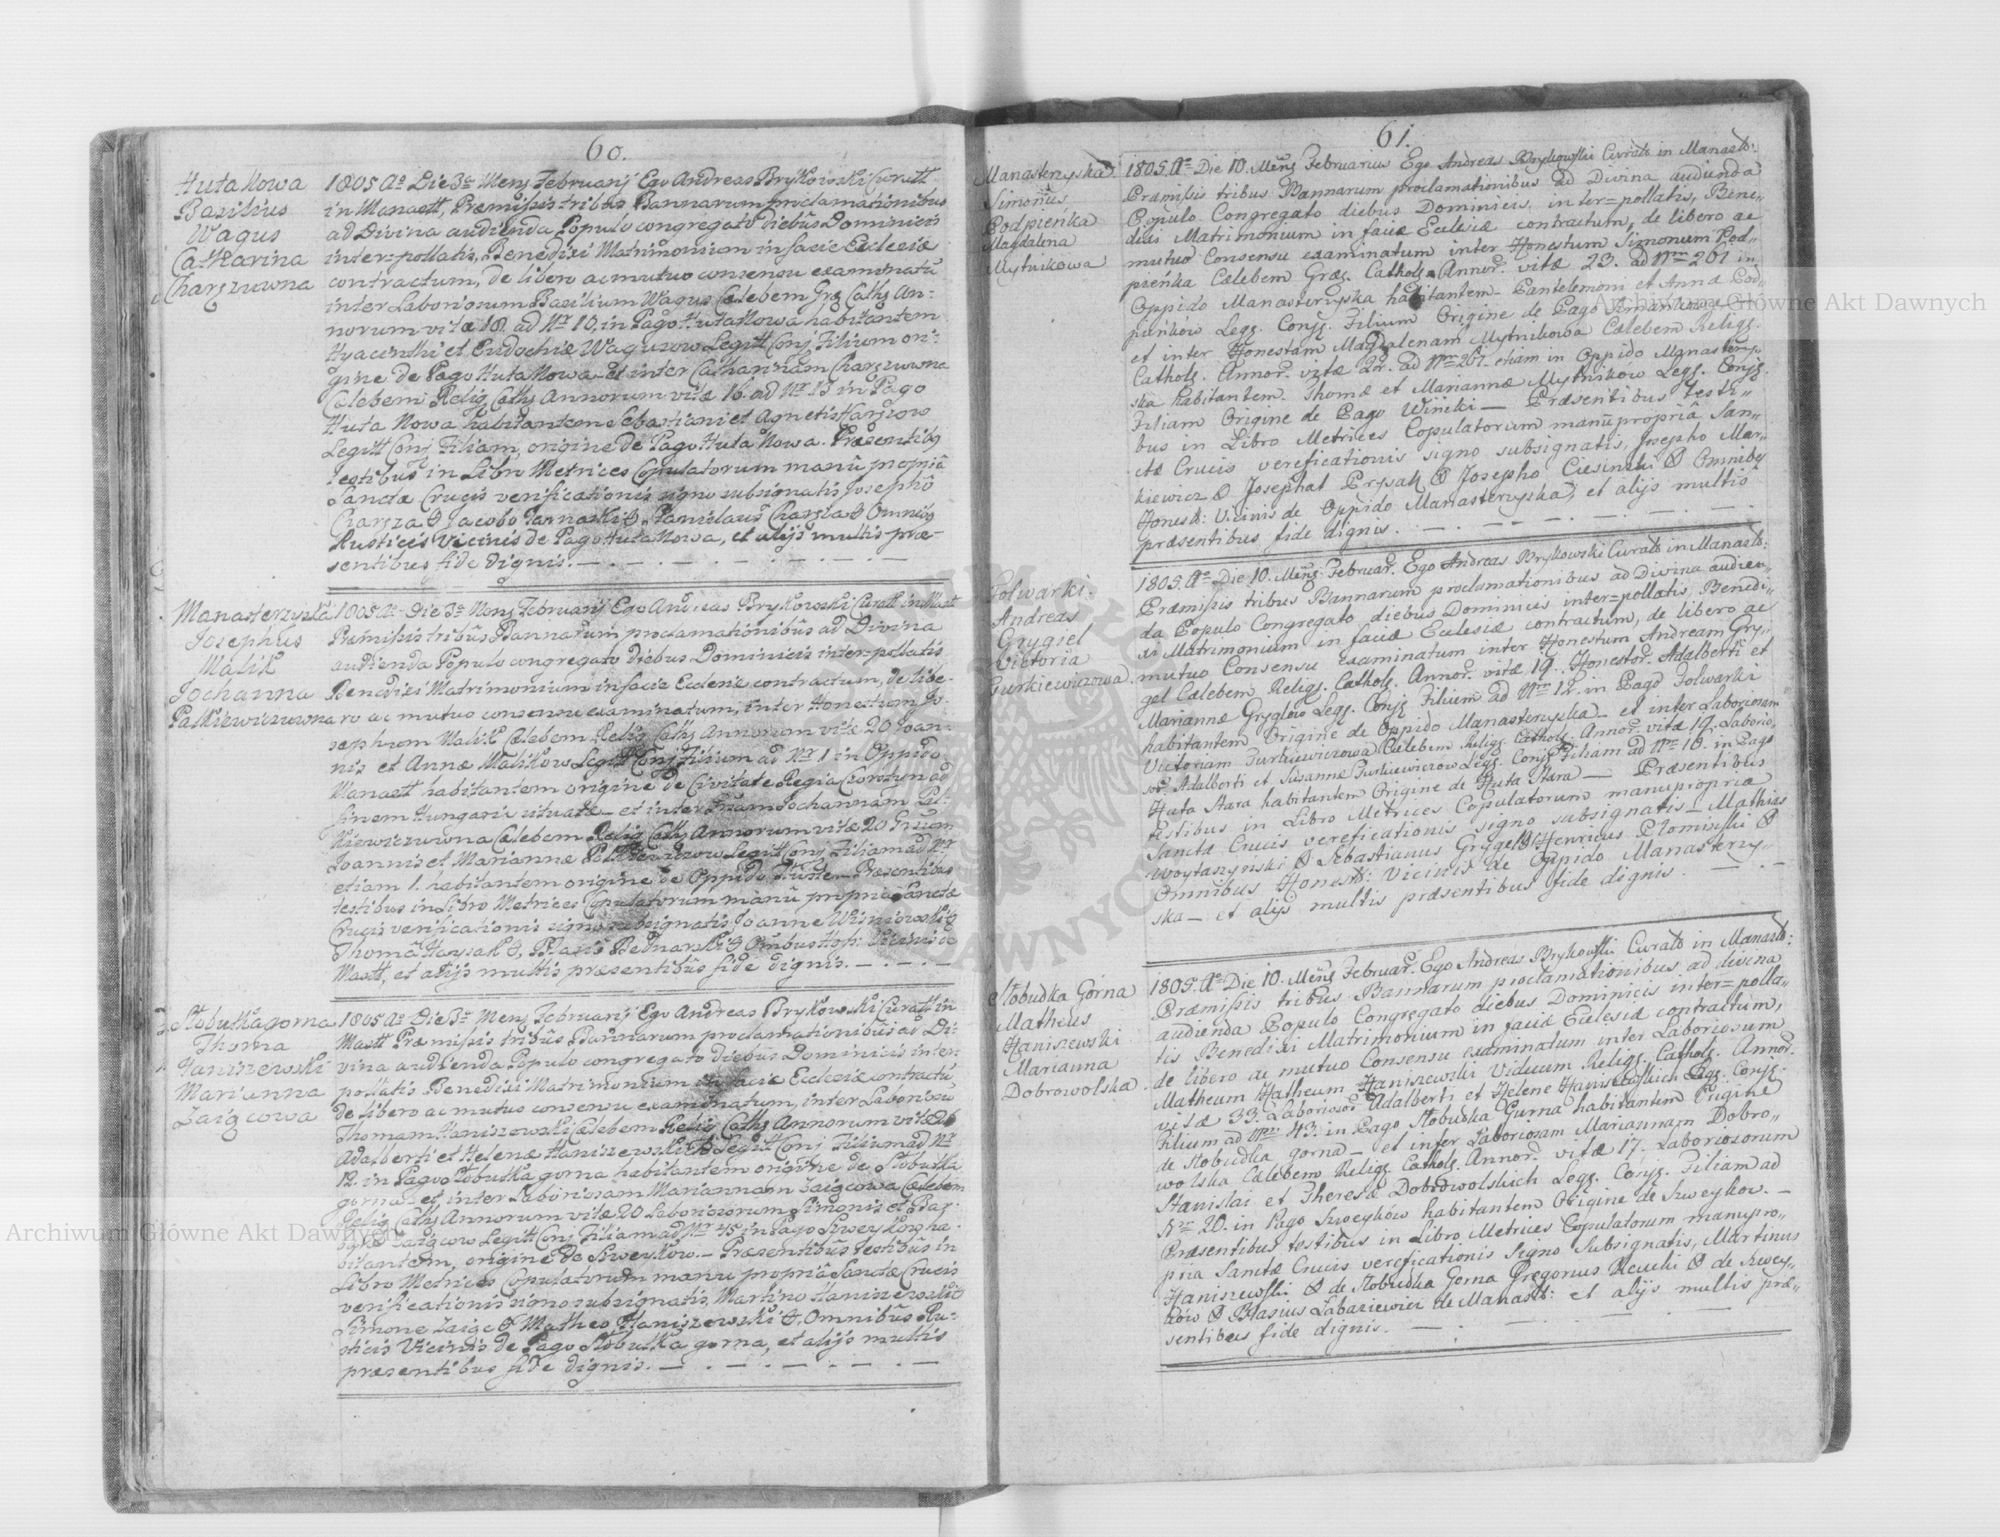 60.
Huta Nowa
Basilius
Wagus
Catharina
Charszuwna
1805 Ao Die 3a Mens Februarij Ego Andreas Brykowski Curatt
in Manastt, Præmissis tribus Bannarum proclamationibus
ad Divina audienda Populo congregato diebus Dominicis
inter-pollatis, Benedixi Matrimonium in facie Ecclesiæ
contractum, de libero ac mutuo consensu examinatũ
inter Laboriosum Basilium Wagus Cælebem Grę Cathǫ An-
norum vitæ 18. ad Nr 10. in Pago Huta Nowa habitantem
Hyacinthi et Eudochiæ Wagusow Legitt Conj Filium ori-
gine de Pago Huta Nowa et inter Catharinam Charszuwna
Cælebem Relig Cath Annorum vitæ 16. ad Nr 13 in Pago
Huta Nowa habitantem Sebastiani et Agnetis Harszow
Legitt Conj Filiam, origine de Pago Huta Nowa. Præsentibg
Testibus in Libro Metrices Copulatorum manũ propriâ
Sanctæ Crucis verificationis signo subsignatis Josephô
Charsza & Jacobo Tarnaski & Stanislaus Charsza & Omnibg
Rusticis Vicinis de Pago Huta Nowa, et alijs multis præ-
sentibus fide dignis.
Manasterzyska
Josephus
Malik
Jochanna
Palkiewiczuwna
1805 Ao Die 3a Mens Februarij Ego Andreas Brykowski Curatt in Mastt
Præmissis tribũs Bannarum proclamationibũs ad Divina
audienda Populo congregato diebus Dominicis inter-pollatis
Benedixi Matrimonium in facie Ecclesiæ contractum, de libe-
ro ac mutuo consensu examinatum, inter Honestum Jo-
sephum Malik Cælebem Relig Cath Annorum vitæ 20 Joan-
nis et Annæ Malikow Legitt Conj Filium ad Nr 1 in Oppido
Manastt habitantem origine de Civitate Regia ad
finem Hungariæ situata - et inter Jochannam Pal-
kiewiczuwna Cælebem Relig Cath Annorum vitæ 20
Joannis et Mariannæ Palkiewiczow Legitt Conj Filiam ad Nr
etiam 1. habitantem origine de Oppido Præsentibus
testibus in Libro Metrices Copulatorum manũ propria Sanctæ
Crucis verificationis signo subsignatis Joanne Wisniowski &
Thomâ & Blasio Bednarski & Omĩbus Hon: Vicinis de
Mastt, et alijs multis præsentibũs fide dignis.
Słobutka gorna
Thoma
Haniszewski
Marianna
Zaigcowa
1805 Ao Die 3a Mens Februarij Ego Andreas Brykowski Curatt in
Mastt Præmissis tribũs Bannarum proclamationibus ad Di-
vina audienda Populo congregato diebus Dominicis inter-
pollatis Benedixi Matrimonium in facie Ecclesiæ contractũ,
de libero ac mutuo consensu examinatum, inter Laboriosũ
Thomam Haniszewski Cælebem Relig Cath Annorum vitæ 26
Adalberti et Helenæ Haniszewskich Legitt Conj Filium ad Nr
12. in Pago Słobutka gorna habitantem origine de Słobutka
gorna - et inter Laboriosam Mariannam Zaigcowa Cælebem
Relig Cath Annorum vitæ 20 Laboriosorum Simonis et Bar-
baræ Zaigcow Legitt Conj Filiam ad Nr 45 in Pago Szweykow ha-
bitantem, origine de Szweykow. - Præsentibũs Testibũs in
Libro Metrices Copulatorum manu propriâ Sanctæ Crucis
verificationis signo subsignatis, Martino Haniszewski &
Simone Zaigc & Matheo Haniszewski & Omnibũs Ru-
sticis Vicinis de Pago Słobutka gorna, et alijs multis
præsentibus fide dignis.
61.
Manasterzyska
Simonus
Podpieńka
Magdalena
Mytnikowa
1805. Ao Die 10. Meñs Februarius Ego Andreas Brykowski Curato in Manast:
Præmissis tribus Bannarum proclamationibus ad Divina audienda
Populo Congregato diebus Dominicis, inter=pollatis, Bene„
dixi Matrimonium in faciæ Eclesiæ contractum, de libero ac
mutuo Consensu examinatum inter Honestum Simonum Pod„
pieńka Cælebem Græc. Catholę Annor. vitæ 23. ad Nrm 201 in
Oppido Manasterzyska habitantem - Pantelemoni et Annæ Pod„
pieńkow Legg. Conjg. Filium Origine de Pago
et inter Honestam Magdalenam Mytnikowa Cælebem Religg.
Catholg. Annor. vitæ 22. ad Nrm 267. etiam in Oppido Manasterzy„
ska habitantem Thomæ et Mariannæ Mytnikow Legg. Conjg.
Filiam Origine de Pago Winiki — Præsentibus Testi„
bus in Libro Metrices Copulatorum manũ propriâ San„
ctæ Crucis vereficationis signo subsignatis, Josepho Mar„
kiewicz & Josephat Prysak & Josepho Ciesinski & Omnibg
Honestt: Vicinis de Oppido Manasterzyska, et alijs multis
præsentibus fide dignis.
Folwarki.
Andreas
Grygiel
Victoria
Turkiewiczowa
1805. Ao Die 10. Meñs Februar. Ego Andreas Brykowski Curato in Manast:
Præmissis tribus Bannarum proclamationibus ad Divina audien„
da Populo Congregato diebus Dominicis inter=pollatis, Benedi„
xi Matrimonium in faciæ Eclesiæ contractum, de libero ac
mutuo Consensu examinatum inter Honestum Andream Gry„
giel Cælebem Religg. Catholg. Annor. vitæ 19. Honestor. Adalberti et
Mariannæ Gryglow Legg. Conjg Filium ad Nrm 12. in Pago Folwarki
habitantem Origine de Oppido Manasterzyska - et inter Laboriosam
Victoriam Turkiewiczowa Cælebem Religg. Catholg. Annor. vitæ 19. Laborio„
sor. Adalberti et Susannæ Turkiewiczow Legg. Conjg Filiam ad Nrm 16. in Pago
Huta Stara habitantem Origine de Huta Stara — Præsentibus
testibus in Libro Metrices Copulatorum manupropria
Sanctæ Crucis vereficationis signo subsignatis - Mathias
Woytaszyński & Sebastianus Grygel & Henricus Płominski &
Omnibus Honestt: Vicinis de Oppido Manasterzy„
ska - et alijs multis præsentibus fide dignis.
Słobudka Gorna
Matheus
Haniszewski
Marianna
Dobrowolska
1805. Ao Die 10. Meñs Februar. Ego Andreas Brykowski Curato in Manast:
Præmissis tribus Bannarum proclamationibus ad divina
audienda Populo Congregato diebus Dominicis inter=polla„
tis Benedixi Matrimonium in faciæ Eclesiæ contractum,
de libero ac mutuo Consensu examinatum inter Laboriosum
Matheum Haniszewski Viduum Religg. Catholg. Annor.
vitæ 33. Laboriosor. Adalberti et Helenæ Haniszewskich Legg. Conjg.
Filium ad Nrm 43. in Pago Słobudka Gurna habitantem Origine
de Słobudka gorna - et inter Laboriosam Mariannam Dobro„
wolska Cælebem Religg. Catholg. Annor. vitæ 17. Laboriosorum
Stanislai et Theresæ Dobrowolskich Legg. Conjg. Filiam ad
Nrm 20. in Pago Szweyków habitantem Origine de Szweykow. —
Præsentibus testibus in Libro Metrices Copulatorum manupro„
pria Sanctæ Crucis vereficationis Signo Subsignatis, Martinus
Haniszewski & de Słobudka Gorna Gregorius & de Szwey„
ków & Blasius Łabaziewicz de Manast: et alijs multis præ„
sentibus fide dignis.
Archiwum Główne Akt Dawnych
Archiwum Główne Akt Dawnych